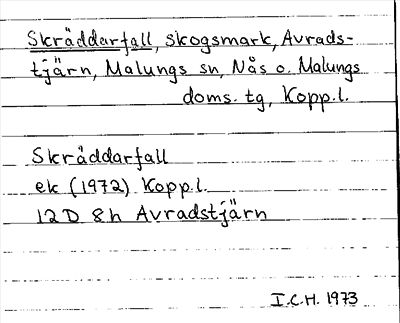 Skräddarfall, skogsmark, Avrads-
tjärn, Malungs sn, Nås o. Malungs
doms. tg, Kopp.l.
Skräddarfall
ek (1972) Kopp.l.
12D 8h Avradstjärn
I.C.H. 1973